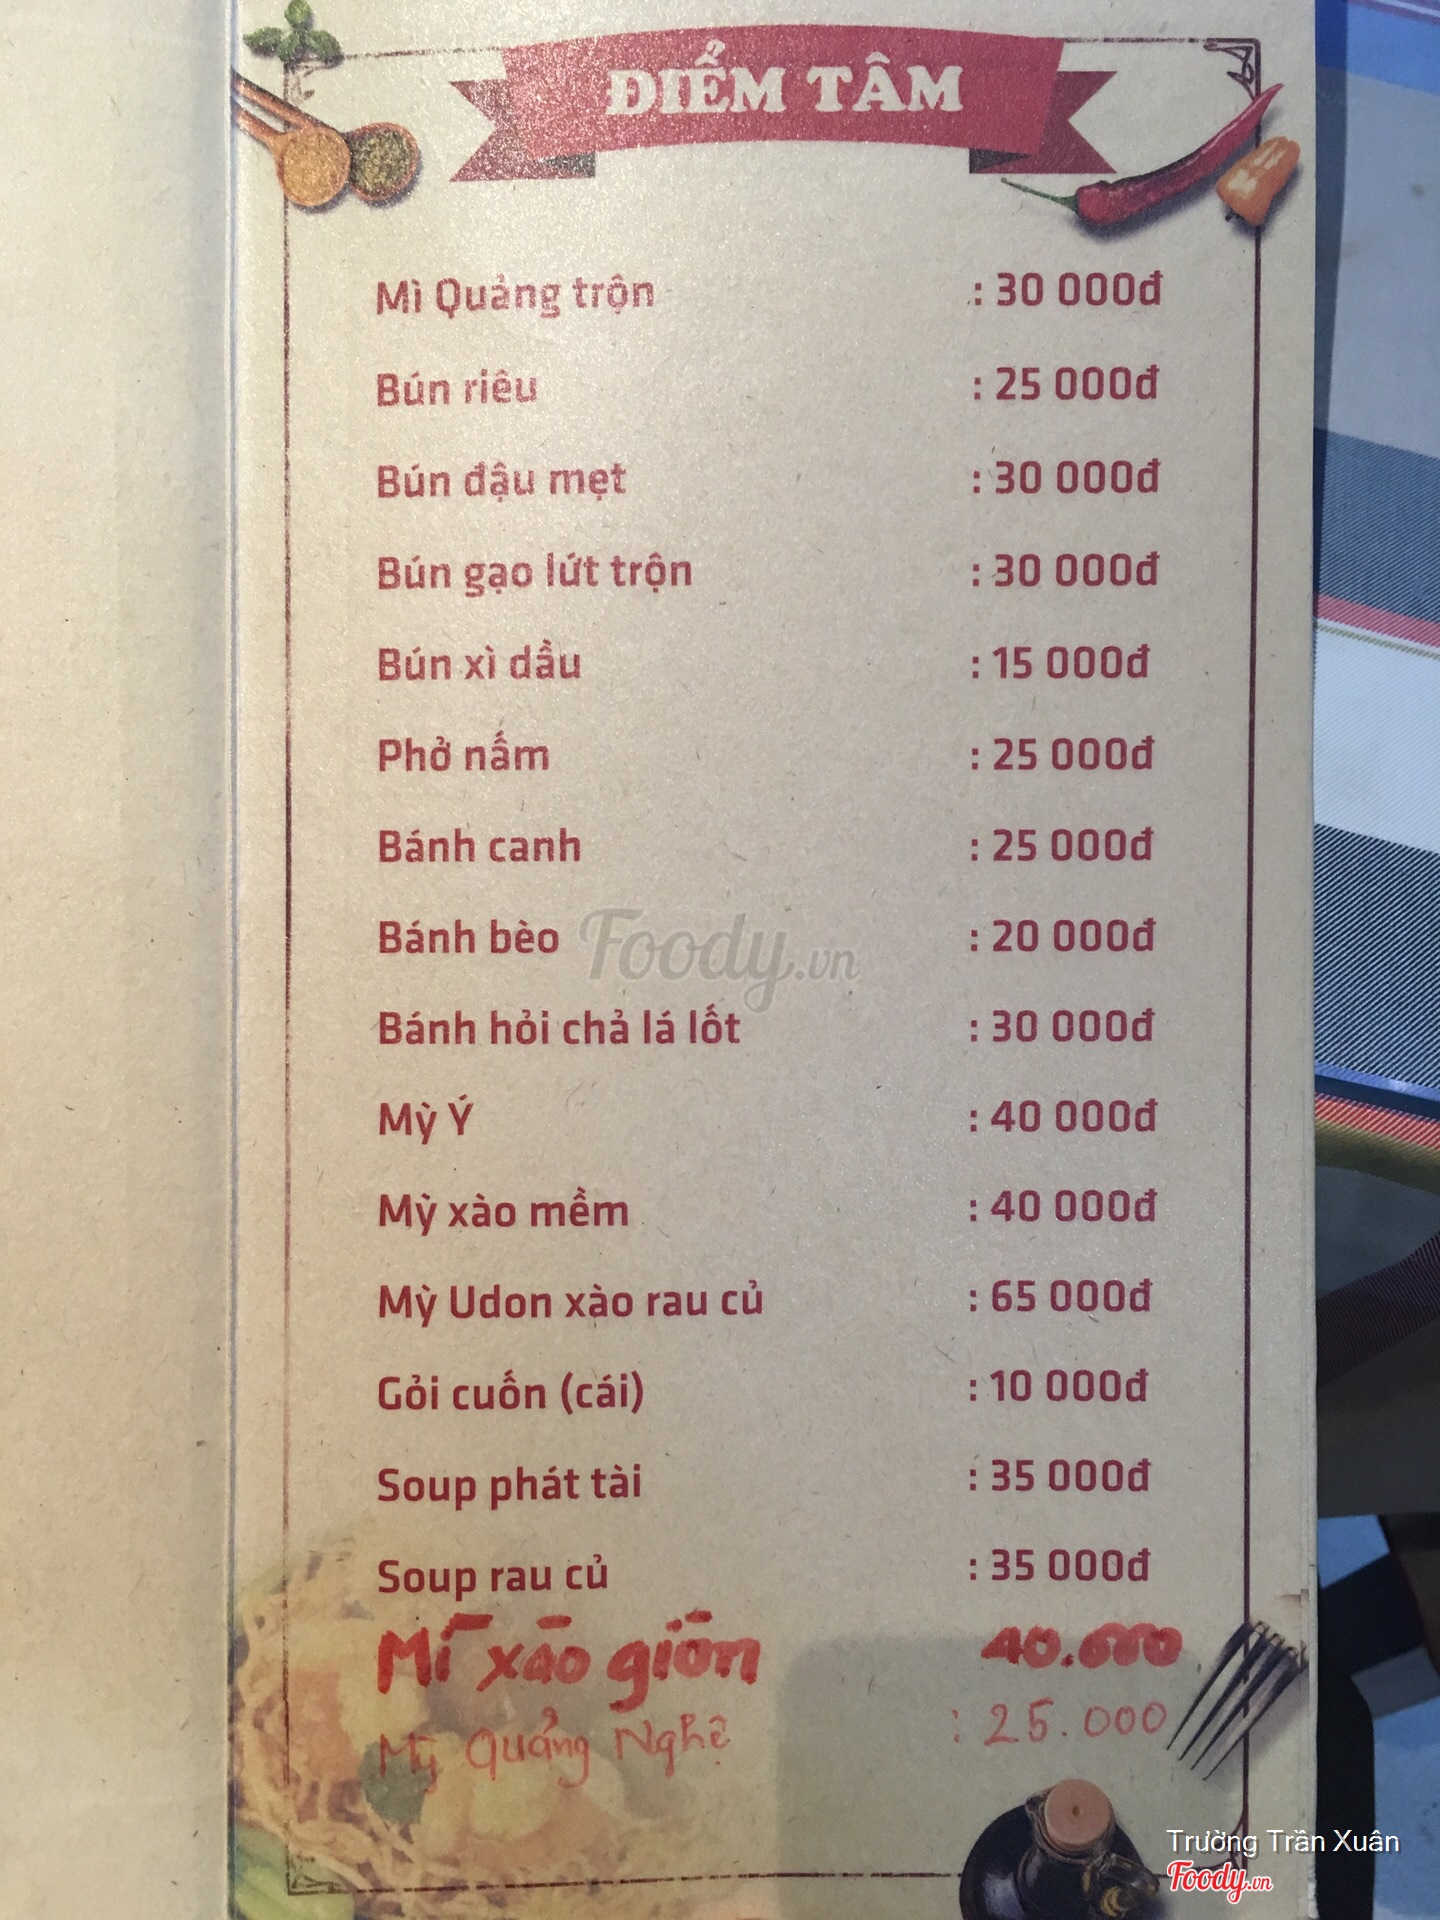 ĐIỂM TÂM
Mì Quảng trộn : 30 000đ
Bún riêu : 25 000đ
Bún đậu mẹt : 30 000đ
Bún gạo lứt trộn : 30 000đ
Bún xì dầu : 15 000đ
Phở nấm : 25 000đ
Bánh canh : 25 000đ
Bánh bèo : 20 000đ
Foody.vn
Bánh hỏi chả lá lốt : 30 000đ
Mỳ Ý : 40 000đ
Mỳ xào mềm : 40 000đ
Mỳ Udon xào rau củ : 65 000đ
Gỏi cuốn (cái) : 10 000đ
Soup phát tài : 35 000đ
Soup rau củ : 35 000đ
Mì xào giòn 40.000
Mỳ Quảng Nghệ : 25.000
Trường Trần Xuân
Foody.vn